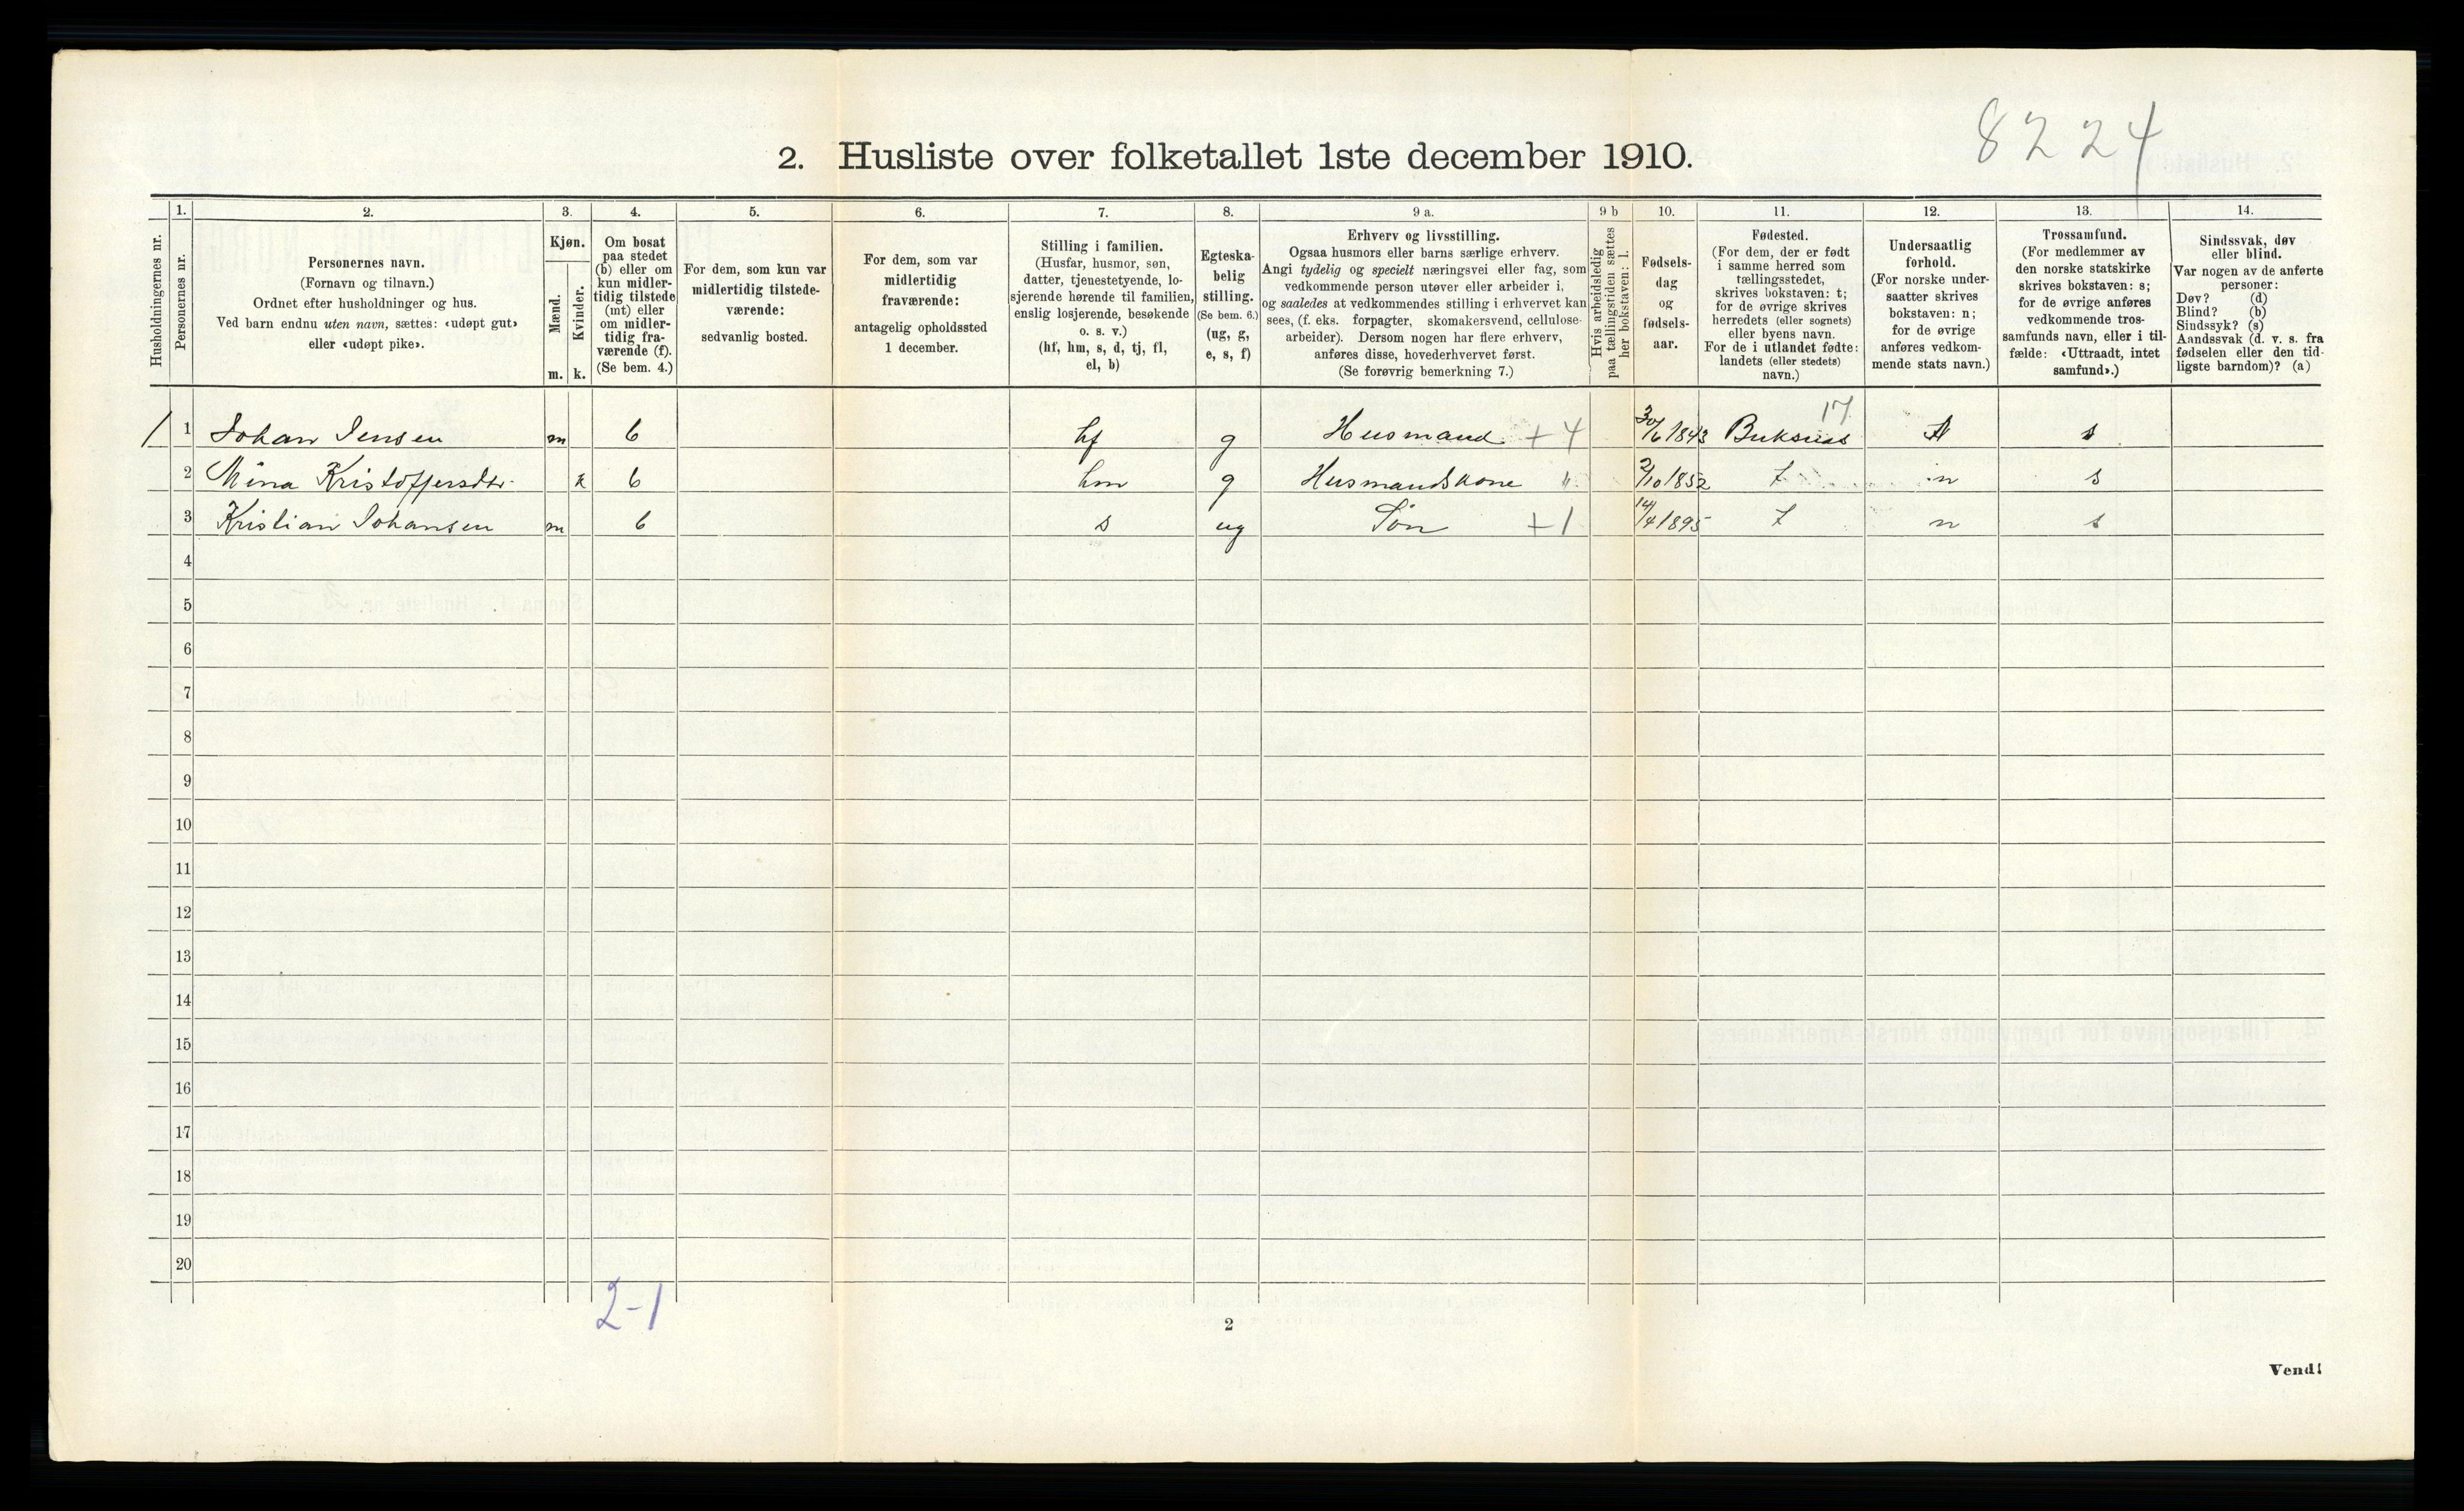 8224
2. Husliste over folketallet 1ste december 1910.
Husholdningernes nr.
1. Personernes nr.
2. Personernes navn.
(Fornavn og tilnavn.)
Ordnet efter husholdninger og hus.
Ved barn endnu uten navn, sættes: «udøpt gut»
eller «udøpt pike».
3. Kjøn.
Mænd. Kvinder.
m. k.
4. Om bosat
paa stedet
(b) eller om
kun midler-
tidig tilstede
(mt) eller
om midler-
tidig fra-
værende (f).
(Se bem. 4.)
5. For dem, som kun var
midlertidig tilstede-
værende:
sedvanlig bosted.
6. For dem, som var
midlertidig
fraværende:
antagelig opholdssted
1 december.
7. Stilling i familien.
(Husfar, husmor, søn,
datter, tjenestetyende, lo-
sjerende hørende til familien,
enslig losjerende, besøkende
o. s. v.)
(hf, hm, s, d, tj, fl,
el, b)
8. Egteska-
belig
stilling.
(Se bem. 6.)
(ug, g,
e, s, f)
9 a. Erhverv og livsstilling.
Ogsaa husmors eller barns særlige erhverv.
Angi tydelig og specielt næringsvei eller fag, som
vedkommende person utøver eller arbeider i,
og saaledes at vedkommendes stilling i erhvervet kan
sees, (f. eks. forpagter, skomakersvend, cellulose-
arbeider). Dersom nogen har flere erhverv,
anføres disse, hovederhvervet først.
(Se forøvrig bemerkning 7.)
9 b Hvis arbeidsledig
paa tællingstiden sættes
her bokstaven: l.
10. Fødsels-
dag
og
fødsels-
aar.
11. Fødested.
(For dem, der er født
i samme herred som
tællingsstedet,
skrives bokstaven: t;
for de øvrige skrives
herredets (eller sognets)
eller byens navn.
For de i utlandet fødte:
landets (eller stedets)
navn.)
12. Undersaatlig
forhold.
(For norske under-
saatter skrives
bokstaven: n;
for de øvrige
anføres vedkom-
mende stats navn.)
13. Trossamfund.
(For medlemmer av
den norske statskirke
skrives bokstaven: s;
for de øvrige anføres
vedkommende tros-
samfunds navn, eller i til-
fælde: «Uttraadt, intet
samfund».)
14. Sindssvak, døv
eller blind.
Var nogen av de anførte
personer:
Døv? (d)
Blind? (b)
Sindssyk? (s)
Aandssvak (d. v. s. fra
fødselen eller den tid-
ligste barndom)? (a)
17
1 1 Johan Jensen m b hf g Husmand + 4 30/6 1843 Buksnes n s
2 Mina Kristoffersdtr. k b hm g Husmandskone " 2/10 1852 t n s
3 Kristian Johansen m b s ug Søn + 1 14/4 1895 t n s
4
5
6
7
8
9
10
11
12
13
14
15
16
17
18
19
20
2-1
2
Vend!